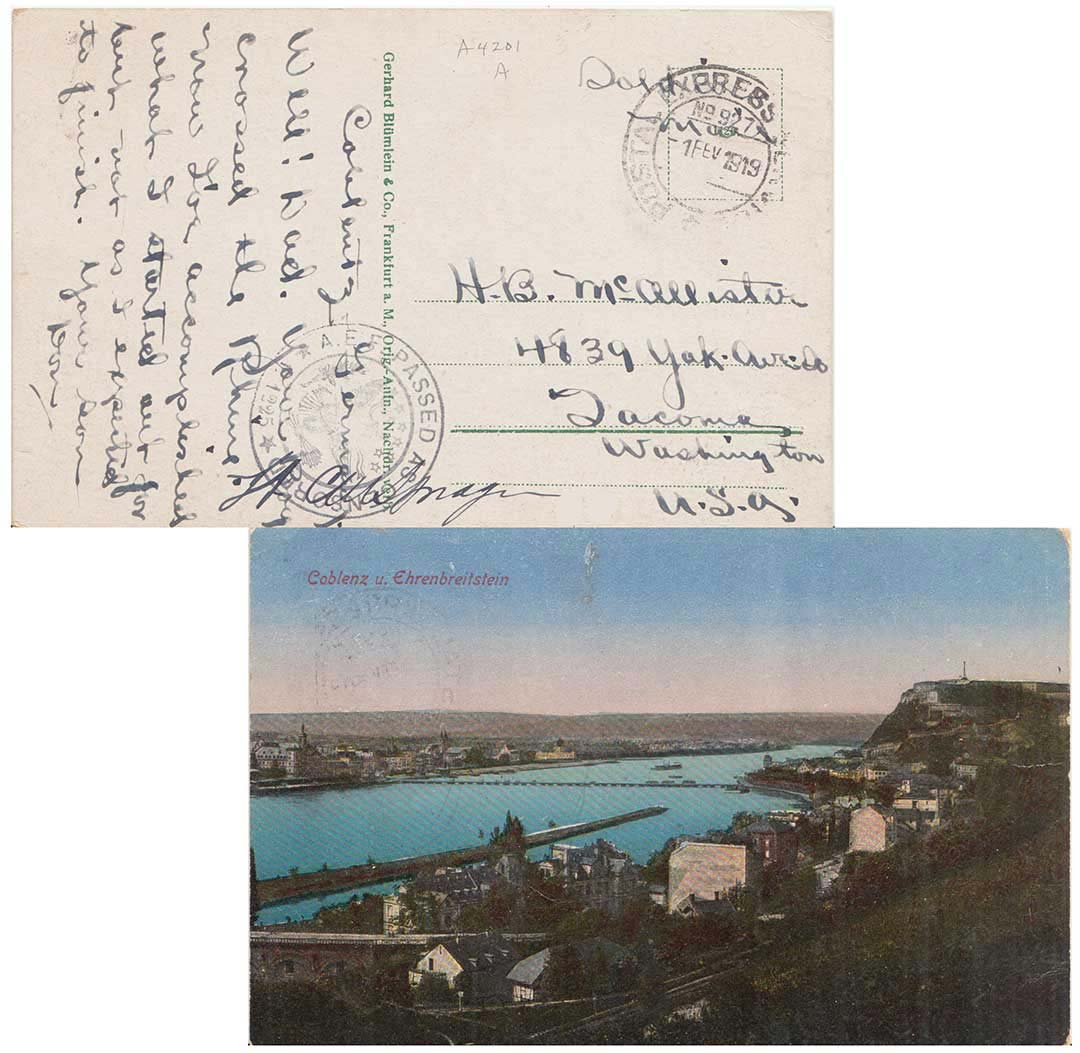 A4201
A
Soldiers
mail
POSTAL EXPRESS
No 927
1 FEV 1919
H.B. McAllister
4839 Yak. Ave. So
Tacoma
Washington
U.S.A.
Gerhard Blümlein & Co., Frankfurt a. M., Orig.-Aufn., Nachdr.
Coblentz, Germany
Well! Dad. Your
crossed the Rhine.
now I've accomplished
what I started out for
but not as I expected
to finish. Your son
Roy
A.E.F. PASSED AS CENSORED
1925
Coblenz u. Ehrenbreitstein